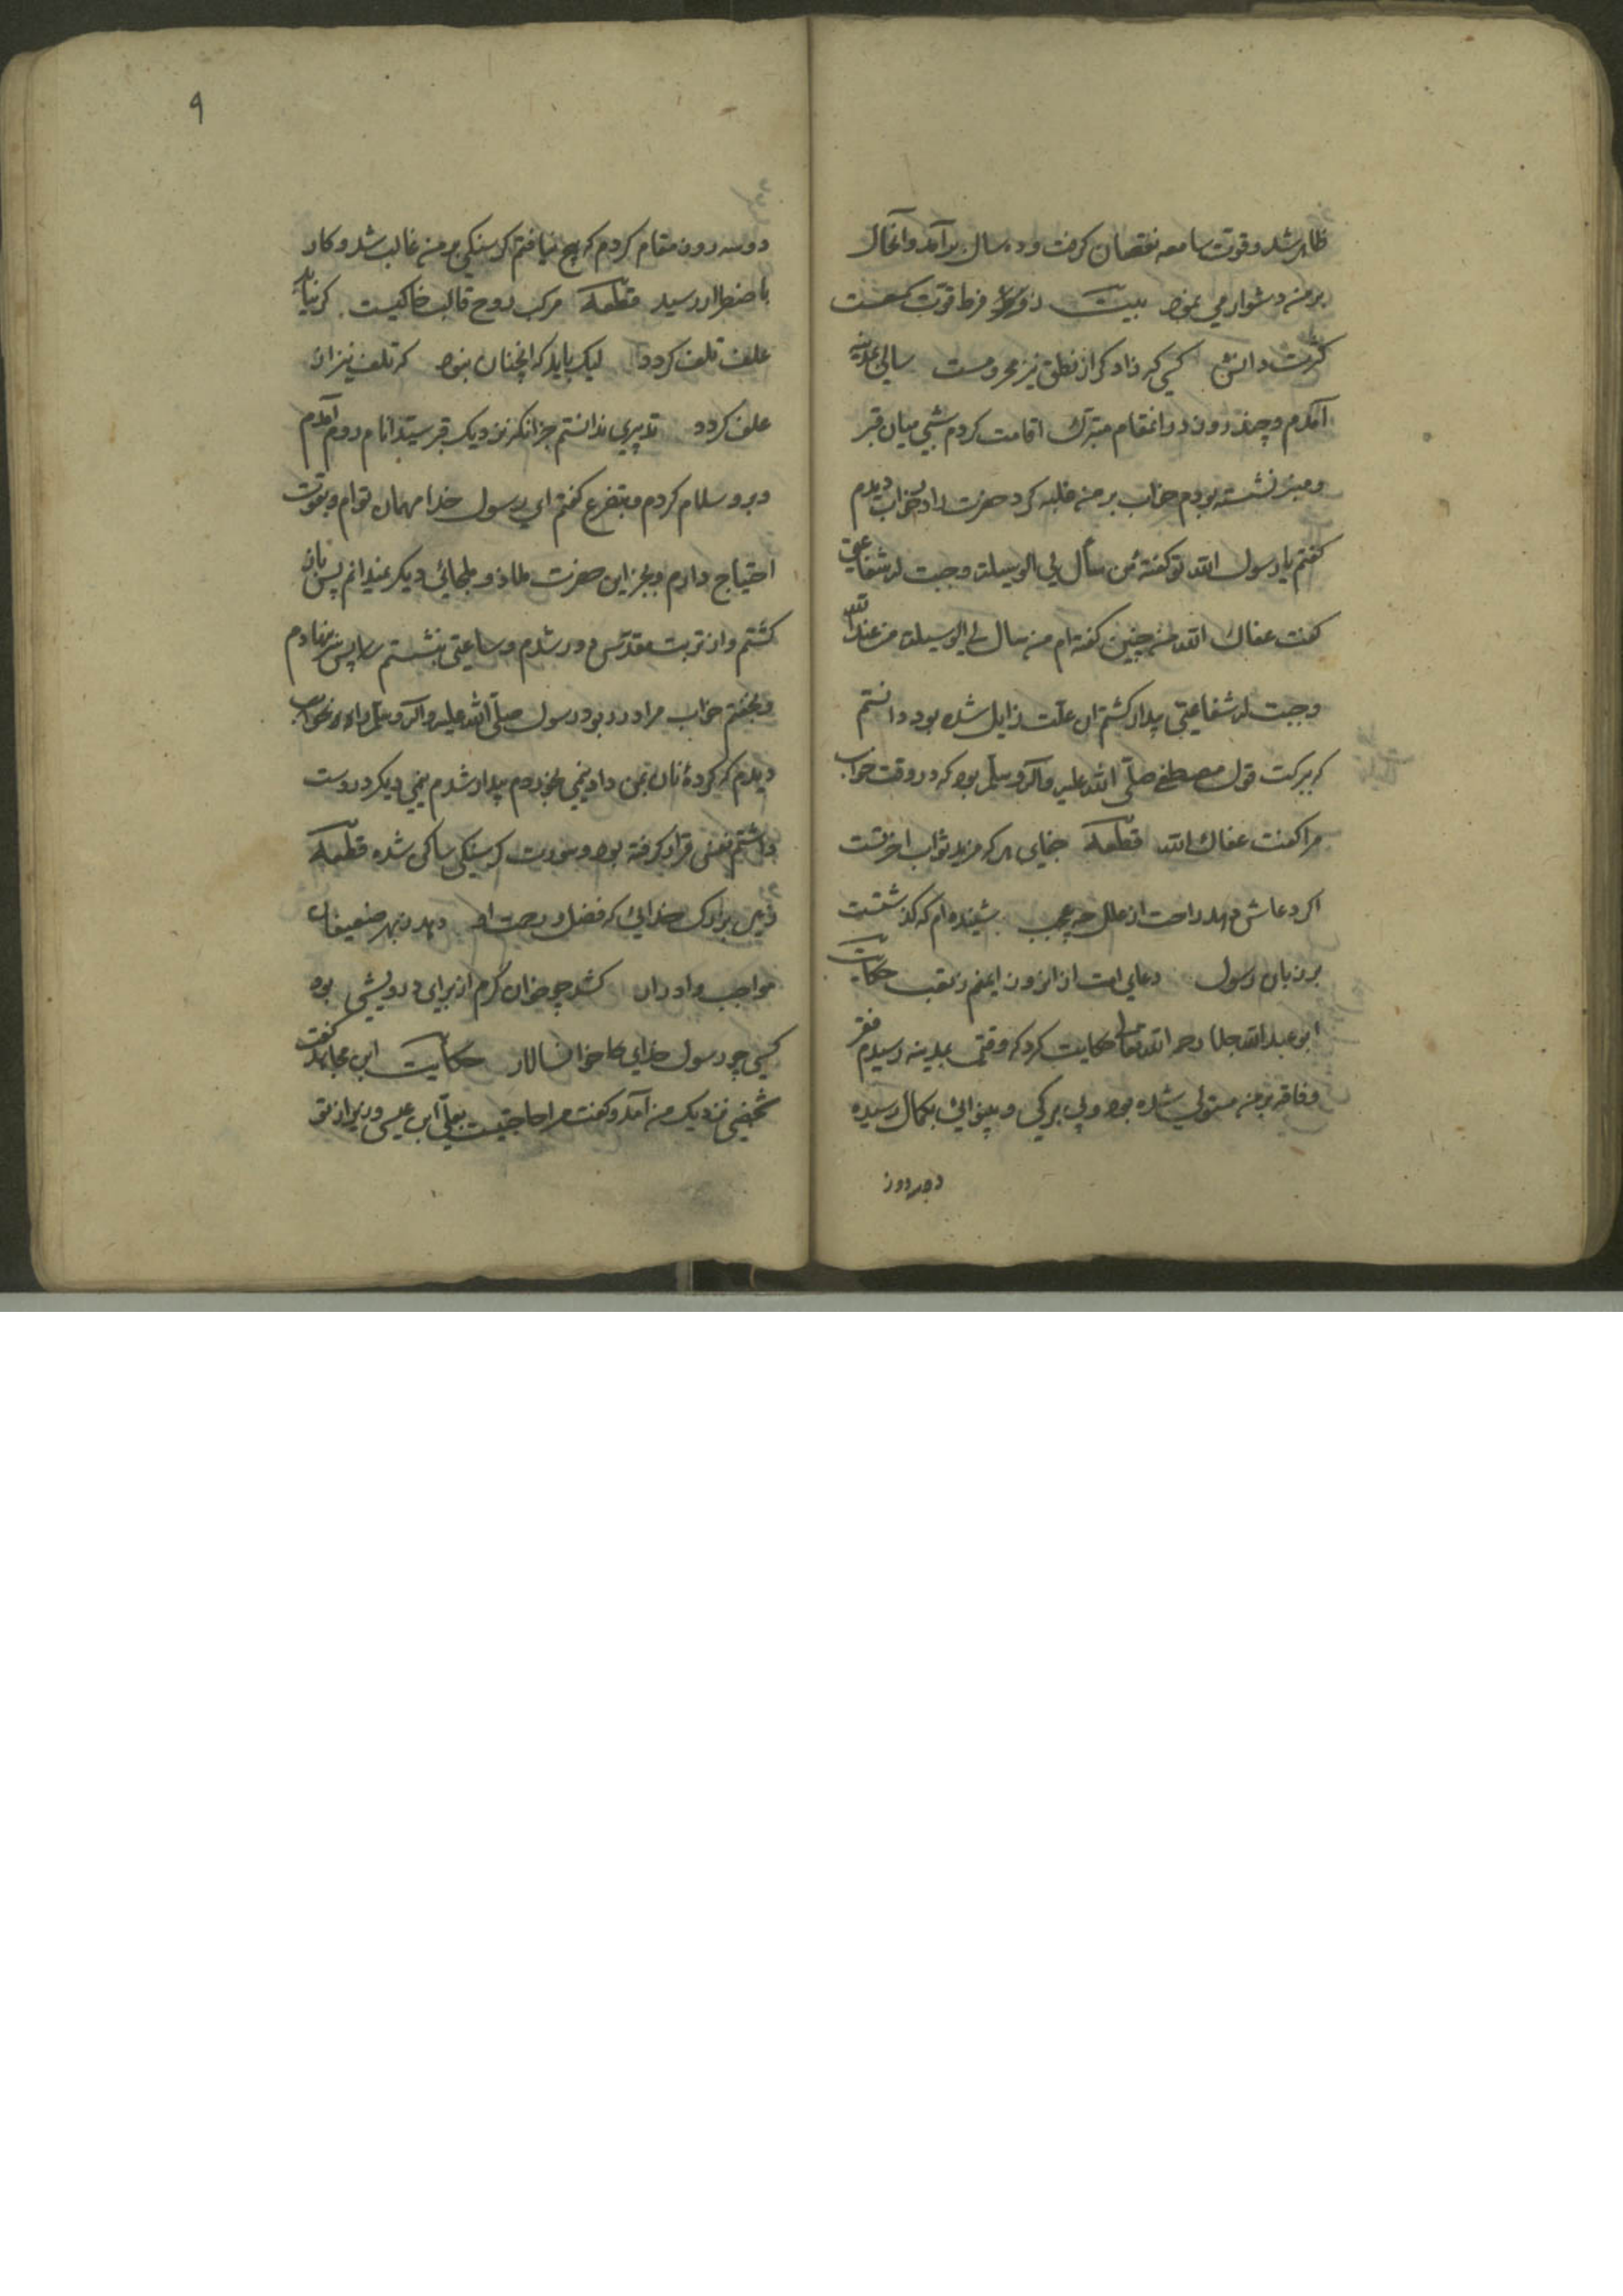 ظاهر شد و قوت سامعه نقصان گرفت و ده سال برآمد و آنحال
بر من دشوار می نمود بیت ز فرط قوت سمعست
کثرت دانش کسی که زاد کر از نطق نیز محرومست سالی بمدینه
آمدم و چند روز در آنمقام متبرک اقامت کردم شبی میان قبر
و منبر نشسته بودم خواب بر من غلبه کرد حضرت را بخواب دیدم
گفتم یا رسول الله تو گفتهٔ من سأل لی الوسیلة وجبت له شفاعتی
گفت عفاک الله نه چنین گفته ام من سال لی الوسیلة من عند الله
وجبت له شفاعتی بیدار گشتم آن علت زایل شده بود دانستم
که ببرکت قول مصطفی صلی الله علیه وآله وسلم بود که در وقت خواب
مرا گفت عفاک الله قطعه جفای هر که مزید ثواب آخرتست
اگر دعاش دهد راحت از علل چه عجب شنیده ام که گذشتست
بر زبان رسول دعای امت از انروز ایمنم ز تعب حکایت
ابو عبد الله جلا رحمه الله تعالی حکایت کرد که وقتی بمدینه رسیدم فقر
و فاقه بر من مستولی شده بود و بی برگی و بینوائی بکمال رسیده
دوسه روز
۹
دوسه روز مقام کردم که هیچ نیافتم گرسنگی بر من غالب شد و کار
باضطرار رسید قطعه مرکب روح قالب خاکیست گر نیابد
علف تلف گردد لیک باید که آنچنان نبود که تلف نیز از
علف گردد تدبیری ندانستم جز آنکه نزدیک قبر سید انام روم آمدم
و برو سلام کردم و بتضرع گفتم ای رسول خدا مهمان توام و بقوت
احتیاج دارم و بجز این حضرت ملاذ و ملجائی دیگر نمیدانم پس باز
گشتم و از تربت مقدس دور شدم و ساعتی بنشستم سر پیش نهادم
و بخفتم خواب مرا در ربود رسول صلی الله علیه وآله وسلم را بخواب
دیدم که گردهٔ نان بمن داد نیمی بخوردم بیدار شدم نیمی دیگر در دست
داشتم نفس قرار گرفته بود و سورت گرسنگی ساکن شده قطعه
خدائی که فضل و رحمت او دهد ز بهر ضعیفان
مواجب و ادرار کشد چو خوان کرم از برای درویشی بود
کسی چو رسول خدای خوانسالار حکایت ابن مجاهد گفت
شخصی نزدیک من آمد و گفت مرا حاجتیست بعلی ابن عیسی وزیر از تو